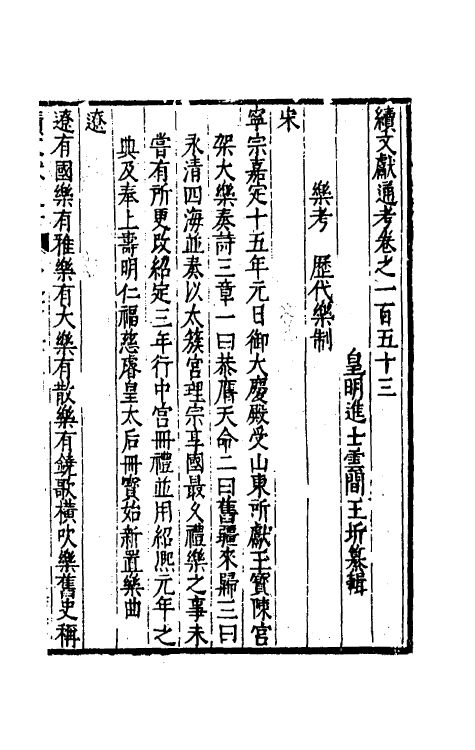 續文獻通考卷之一百五十三
皇明進士雲間王圻纂輯
樂考　歷代樂制
宋
寧宗嘉定十五年元日御大慶殿受山東所獻玉寶陳宮
架大樂奏詩三章一曰恭膺天命二曰舊疆來歸三曰
永清四海並奏以太簇宮理宗享國最久禮樂之事未
嘗有所更改紹定三年行中宮冊禮並用紹熙元年之
典及奉上壽明仁福慈睿皇太后冊寶始新置樂曲
遼
遼有國樂有雅樂有大樂有散樂有鐃歌橫吹樂舊史稱